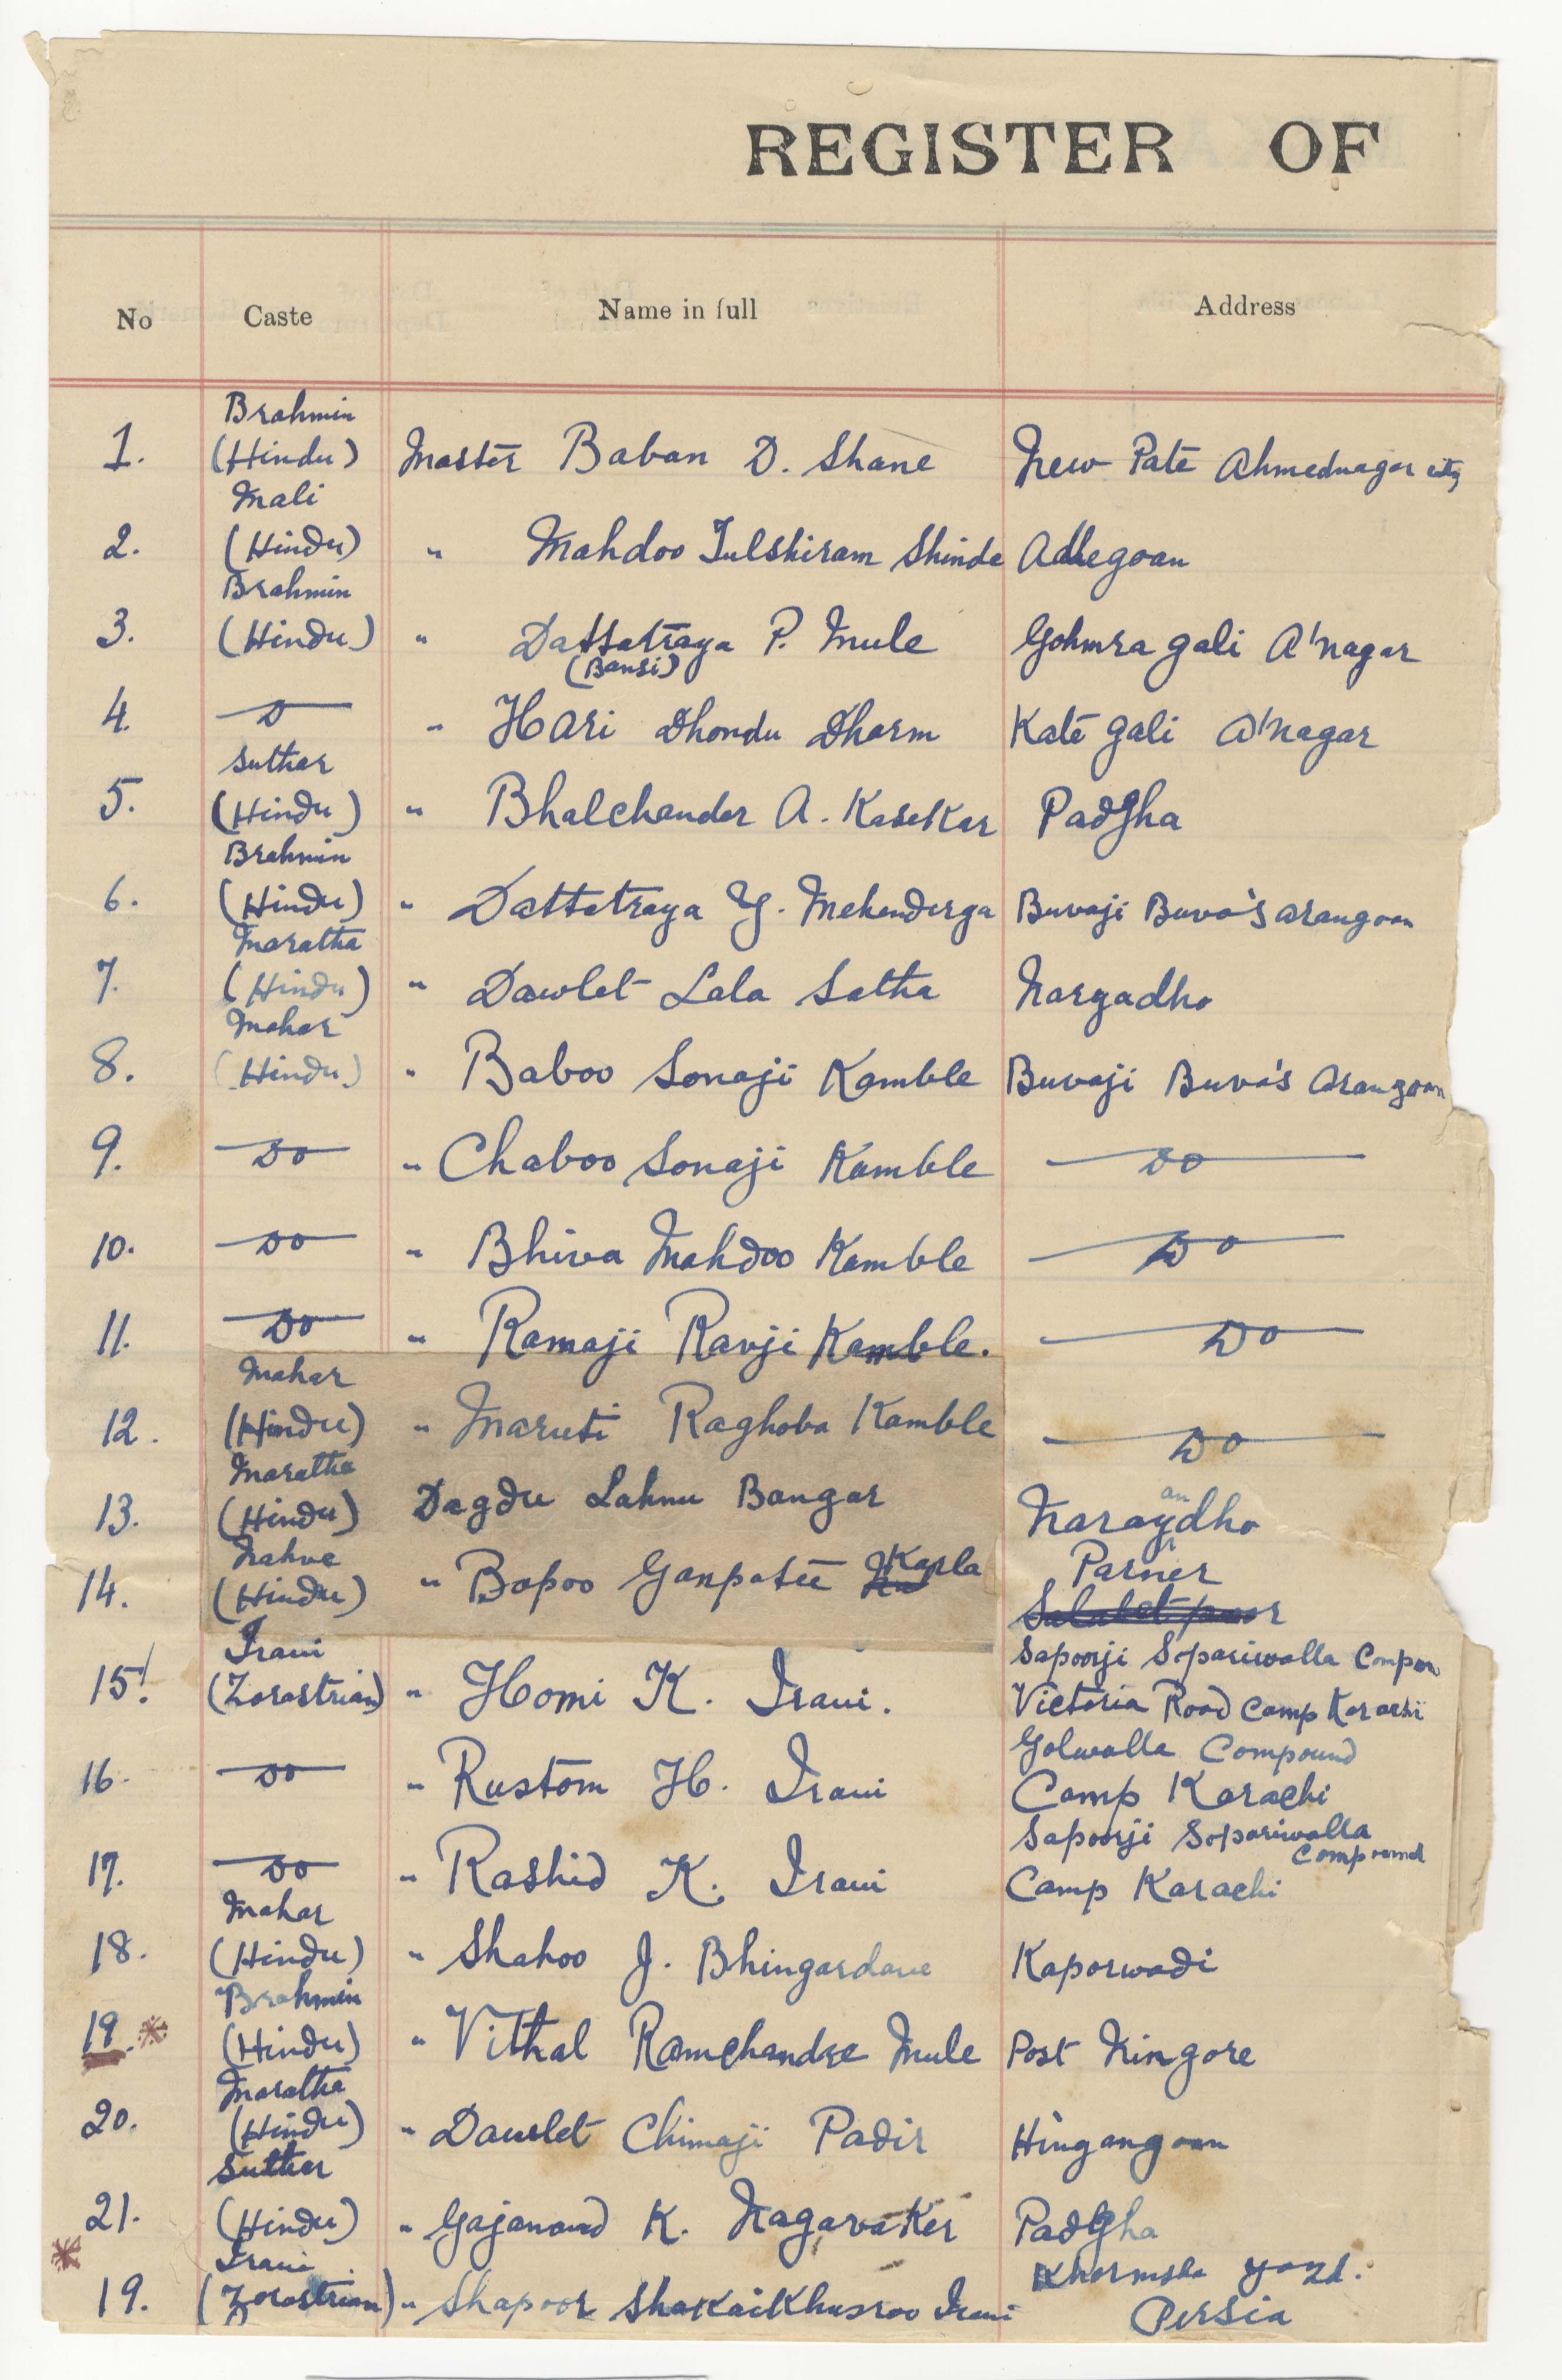 REGISTER OF
No Caste Name in full Address
Brahmin
1. (Hindu) Master Baban D. Shane New Pate Ahmednagar city
Mali
2. (Hindu) " Mahdoo Tulshiram Shinde
Brahmin
3. (Hindu) " Dattatraya P. Mule Gohmra gali A'nagar
(Bansi)
4. D " Hari Dhondu Dharm Kate gali A'nagar
Suthar
5. (Hindu) " Bhalchander A. Kasekar Padgha
Brahmin
6. (Hindu) " Dattatraya Y. Mehenderga Buvaji Buva's Arangaon
Maratha
7. (Hindu) " Dawlet Lala Satha Nargadho
Mahar
8. (Hindu) " Baboo Sonaji Kamble Buvaji Buva's Arangaon
9. Do " Chaboo Sonaji Kamble Do
10. Do " Bhiva Mahdoo Kamble Do
11. Do " Ramaji Ravji Kamble. Do
Mahar
12. (Hindu) " Maruti Raghoba Kamble Do
Maratha
13. (Hindu) Dagdu Lahnu Bangar
Nahve Parner
14. (Hindu) " Bapoo Ganpatee Karla
Irani Sapoorji Sopariwalla Compou
15. (Zorastrian) " Homi K. Irani. Victoria Road Camp Karachi
Golwalla Compound
16. Do " Rustom H. Irani Camp Karachi
Sapoorji Sopariwalla
Compound
17. Do " Rashid K. Irani Camp Karachi
Mahar
18. (Hindu) " Shahoo J. Bhingardave Kaporwadi
Brahmin
19. * (Hindu) " Vithal Ramchandre Mule Post Ningore
Maratha
20. (Hindu) " Dawlet Chimaji Padir Hingangaon
Suthar
21. (Hindu) " Gajanand K. Nagavaker Padgha
* Irani Khormsha Yazd.
19. (Zorastrian) " Shapoor Shakaikhusroo Irani Persia